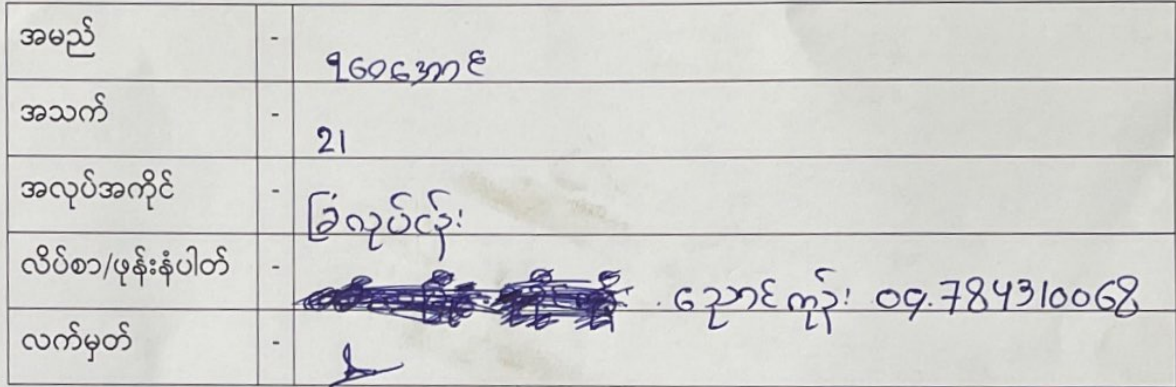 အမည် -
အသက် - 21
အလုပ်အကိုင် - ခြံလုပ်ငန်း
လိပ်စာ/ဖုန်းနံပါတ် - ညောင်ကုန်း 09.784310068
လက်မှတ် -